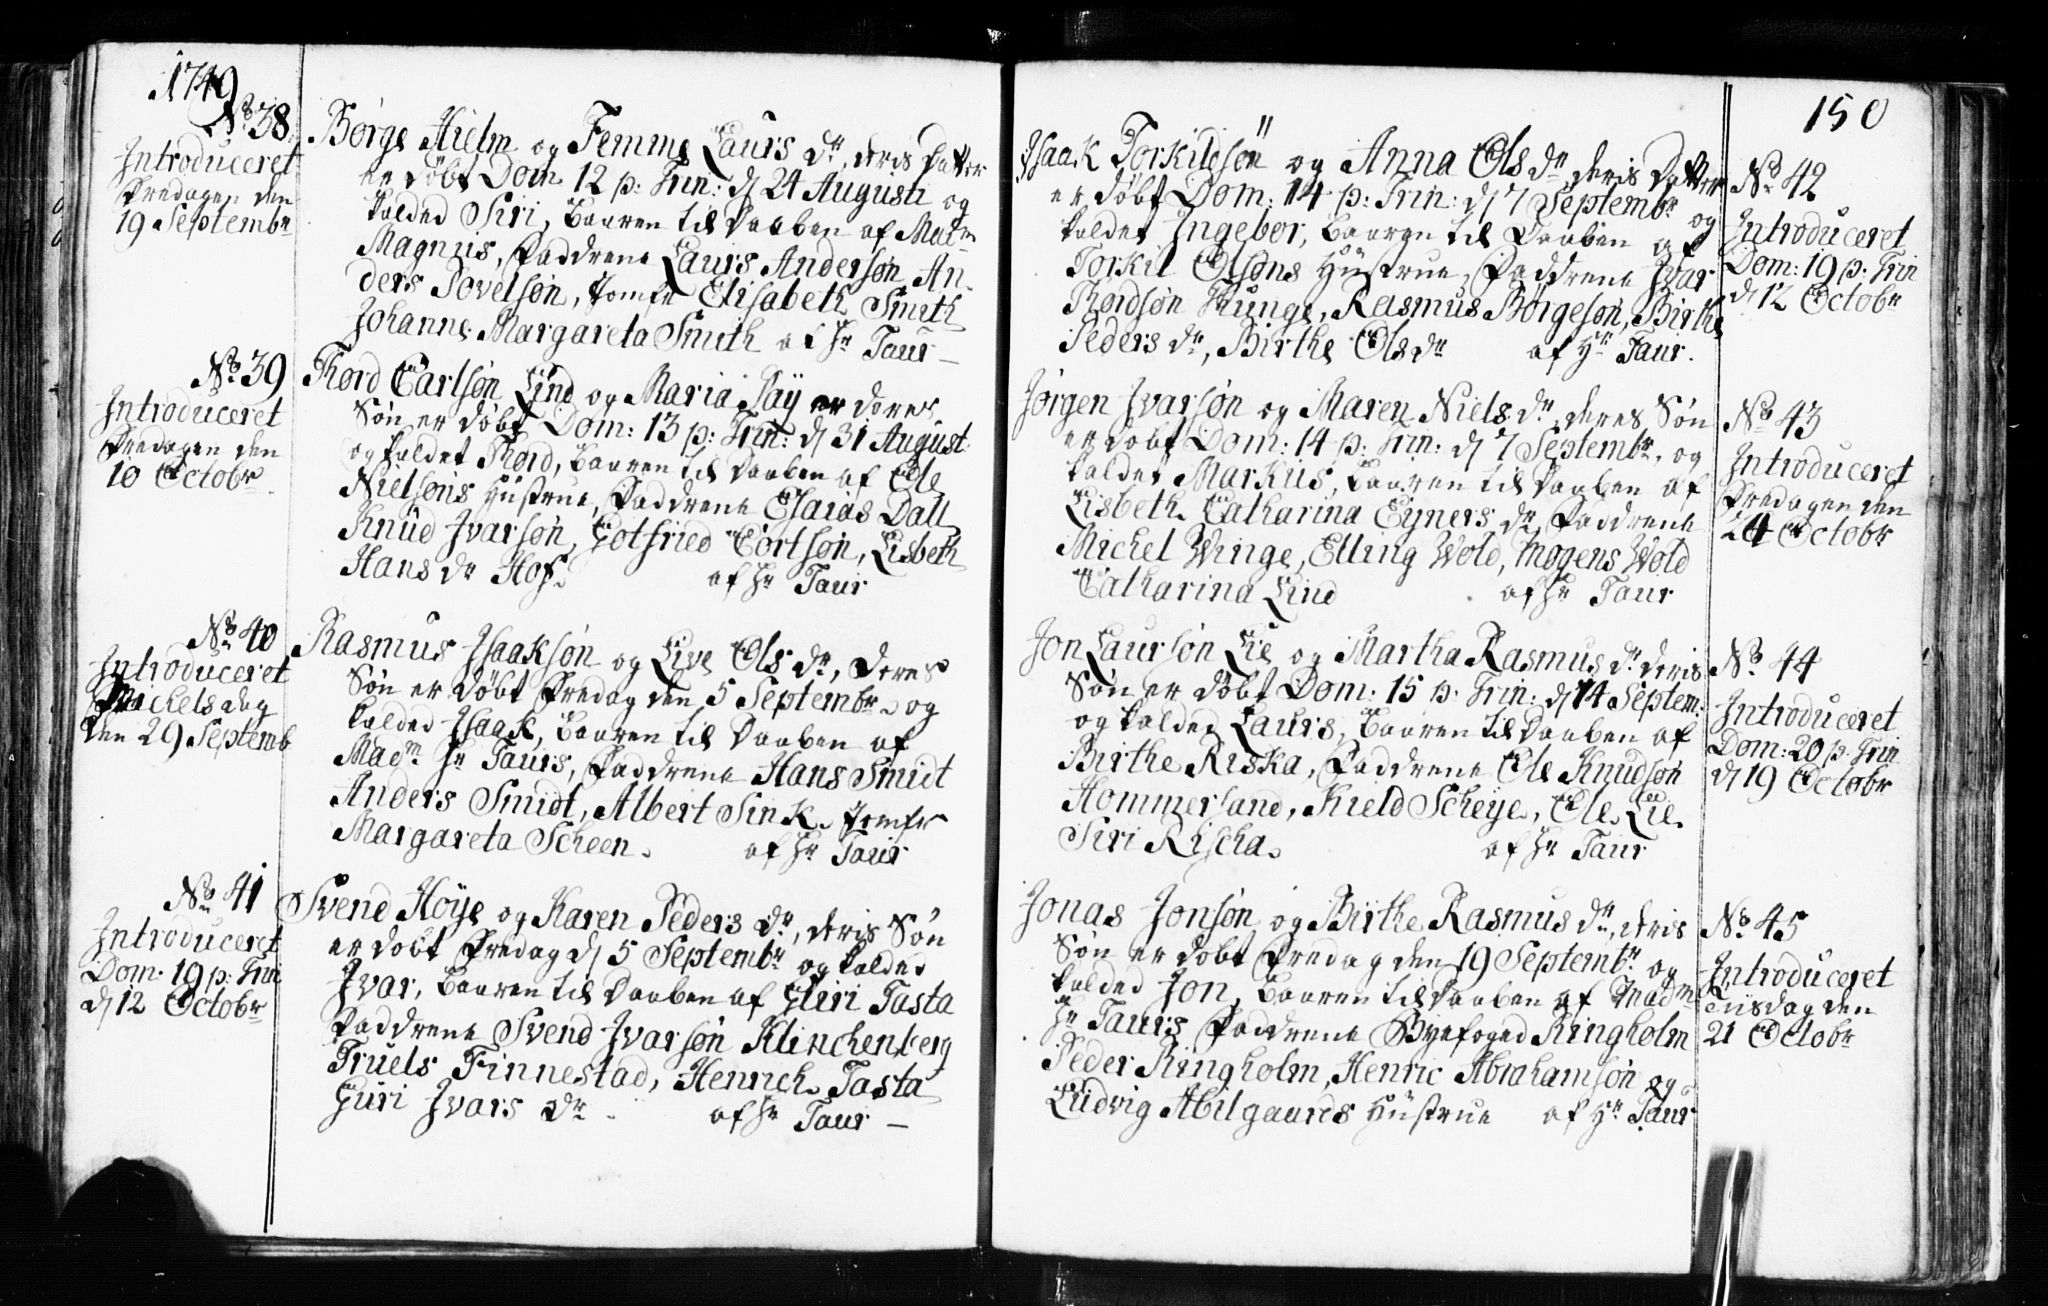 1749
No 38
Introduceret
Fredagen den
19 Septembr
Børge Hielm og Femme Laurs dr, deris Datter
er døbt Dom 12 p: Trin: d 24 Augusti og
kalded Siri, baaren til Daaben af Madm
Magnus, Faddrene Laurs Andersøn, An-
ders Povelsøn, Jomfr Elisabeth Smith
Johanne Margareta Smith af Hr Taur
No 39
Introduceret
Fredagen den
10 Octobr
Thord Carlsøn Lind og Maria Say er deres
Søn er døbt Dom: 13 p: Trin: d 31 August
og kaldet Thord, baaren til Daaben af Ole
Nielsøns Hüstrue, Faddrene Esaias Dall
Knüd Ivarsøn, Gotfried Cortsøn, Lisbeth
Hans dr Hof. af Hr Taur
No 40
Introduceret
Michels dag
den 29 Septemb
Rasmus Isaaksøn og Live Ols dr, deres
Søn er døbt Fredag den 5 Septembr og
kalded Isaak, baaren til Daaben af
Madm Hr Taurs, Faddrene Hans Smidt
Anders Smidt, Albert Sink, Jomfr
Margareta Scheen. af Hr Taur
No 41
Introduceret
Dom. 19 p: Trin
d 12 Octobr
Svend Høye og Karen Peders dr, deris Søn
er døbt Fredag d 5 Septembr og kalded
Ivar, baaren til Daaben af Giri Tasta
Faddrene Svend Ivarsøn Klinchenberg
Truels Finnestad, Henrich Tasta
Guri Ivars dr af Hr Taur
150
Isaak Torkildsøn og Anna Ols dr deris Datter
er døbt Dom: 14 p: Trin: d 7 Septembr og
kaldet Ingebor, baaren til Daaben af
Torkil Olsøns Hüstrue, Faddrene Ivar
Thordsøn Hunge, Rasmus Børgesøn, Birthe
Peders dr, Birthe Ols dr af Hr Taur.
No 42
Introduceret
Dom: 19 p: Trin
d 12 Octobr
Jørgen Ivarsøn og Maren Niels dr, deres Søn
er døbt Dom: 14 p: Trin: d 7 Septembr, og
kaldet Markus, baaren til Daaben af
Lisbeth Catharina Eyners dr, Faddrene
Michel Winge, Elling Wold, Mogens Wold
Catharina Lind af Hr Taur
No 43
Introduceret
Fredagen den
24 Octobr
Jon Laursøn Lie og Martha Rasmus dr deris
Søn er døbt Dom: 15 p: Trin: d 14 Septem.
og kalded Laurs, baaren til Daaben af
Birthe Riska, Faddrene Ole Knudsøn
Hommersand, Kield Scheye, Ole Lie
Siri Rischa. af Hr Taur
No 44
Introduceret
Dom: 20 p: Trin
d 19 Octobr
Jonas Jonsøn og Birthe Rasmus dr, deris
Søn er døbt Fredag den 19 Septembr og
kalded Jon, baaren til Daaben af Madm
Hr Taurs Faddrene Byefoged Ringholm
Peder Ringholm, Henric Abrahamsøn og
Lüdvig Abilgaards Hüstrue af Hr Taur
No 45
Introduceret
Tiisdag den
21 Octobr